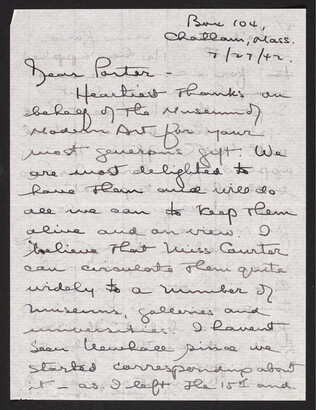 Box 104,
Chatham, Mass.
7/27/42.
Dear Porter -
Heartiest thanks on
behalf of the Museum of
Modern Art for your
most generous gift. We
are most delighted to
have them and will do
all we can to keep them
alive and on view. I
believe that Miss Courter
can circulate them quite
widely to a number of
museums, galleries and
universities. I haven't
seen Newhall since we
started correspondence about
it - as I left the 15th and